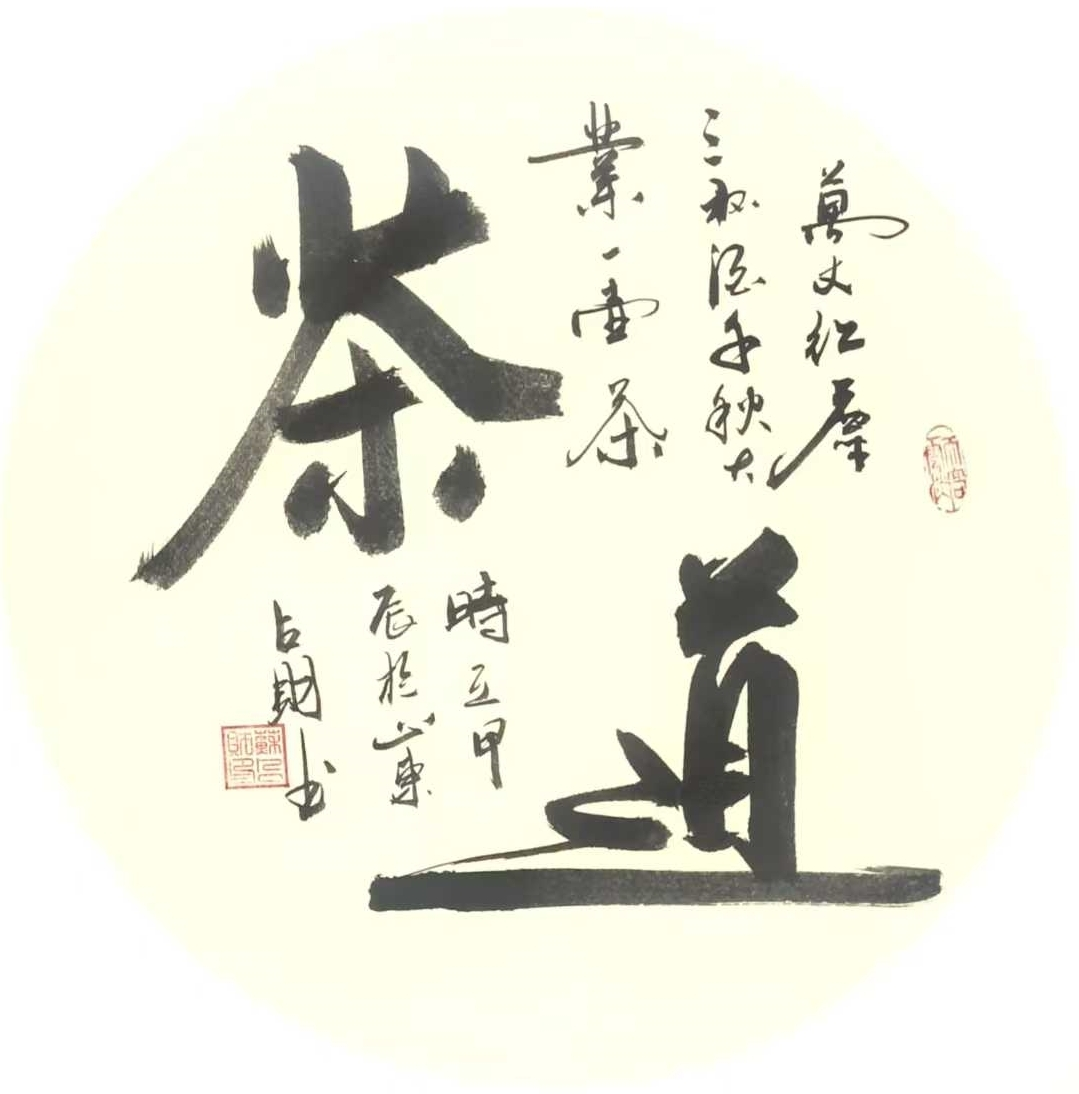 茶道
萬丈紅塵
三杯酒千秋大
業一壺茶
時在甲
辰於山東
占財书